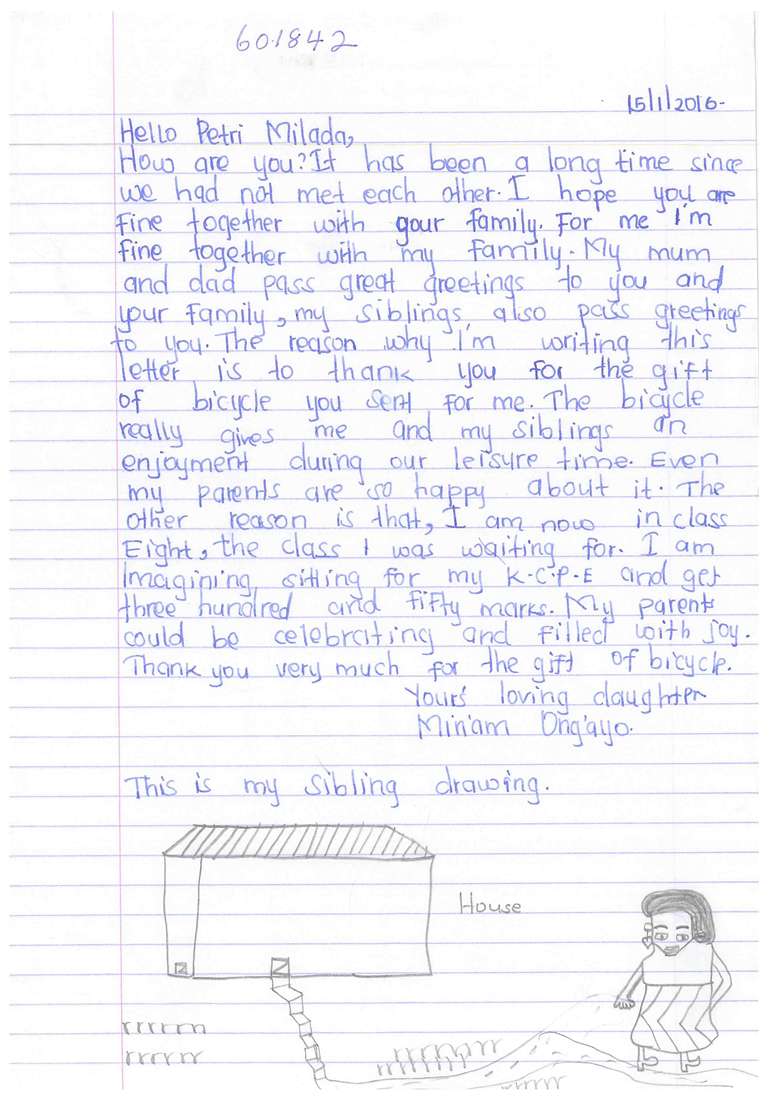 601842
15/1/2016-
Hello Petri Milada,
How are you? It has been a long time since
we had not met each other. I hope you are
fine together with your family. For me I'm
fine together with my family. My mum
and dad pass great greetings to you and
your family, my siblings also pass greetings
to you. The reason why I'm writing this
letter is to thank you for the gift
of bicycle you sent for me. The bicycle
really gives me and my siblings an
enjoyment during our leisure time. Even
my parents are so happy about it. The
other reason is that, I am now in class
Eight, the class I was waiting for. I am
imagining sitting for my K.C.P.E and get
three hundred and fifty marks. My parents
could be celebrating and filled with joy.
Thank you very much for the gift of bicycle.
Yours' loving daughter
Miriam Ong'ayo.
This is my sibling drawing.
House